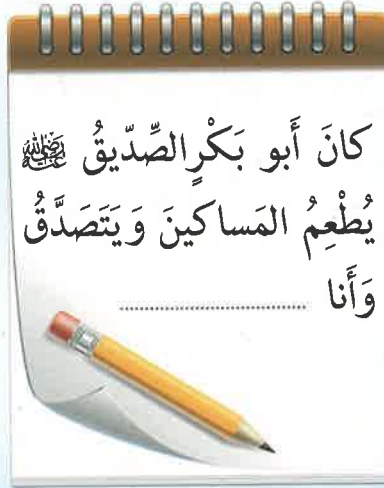 كانَ أَبو بَكْرٍالصِّدّيقُ رَضِيَ اللهُ عَنْهُ
يُطْعِمُ المَساكينَ وَيَتَصَدَّقُ
وَأَنا ..............................